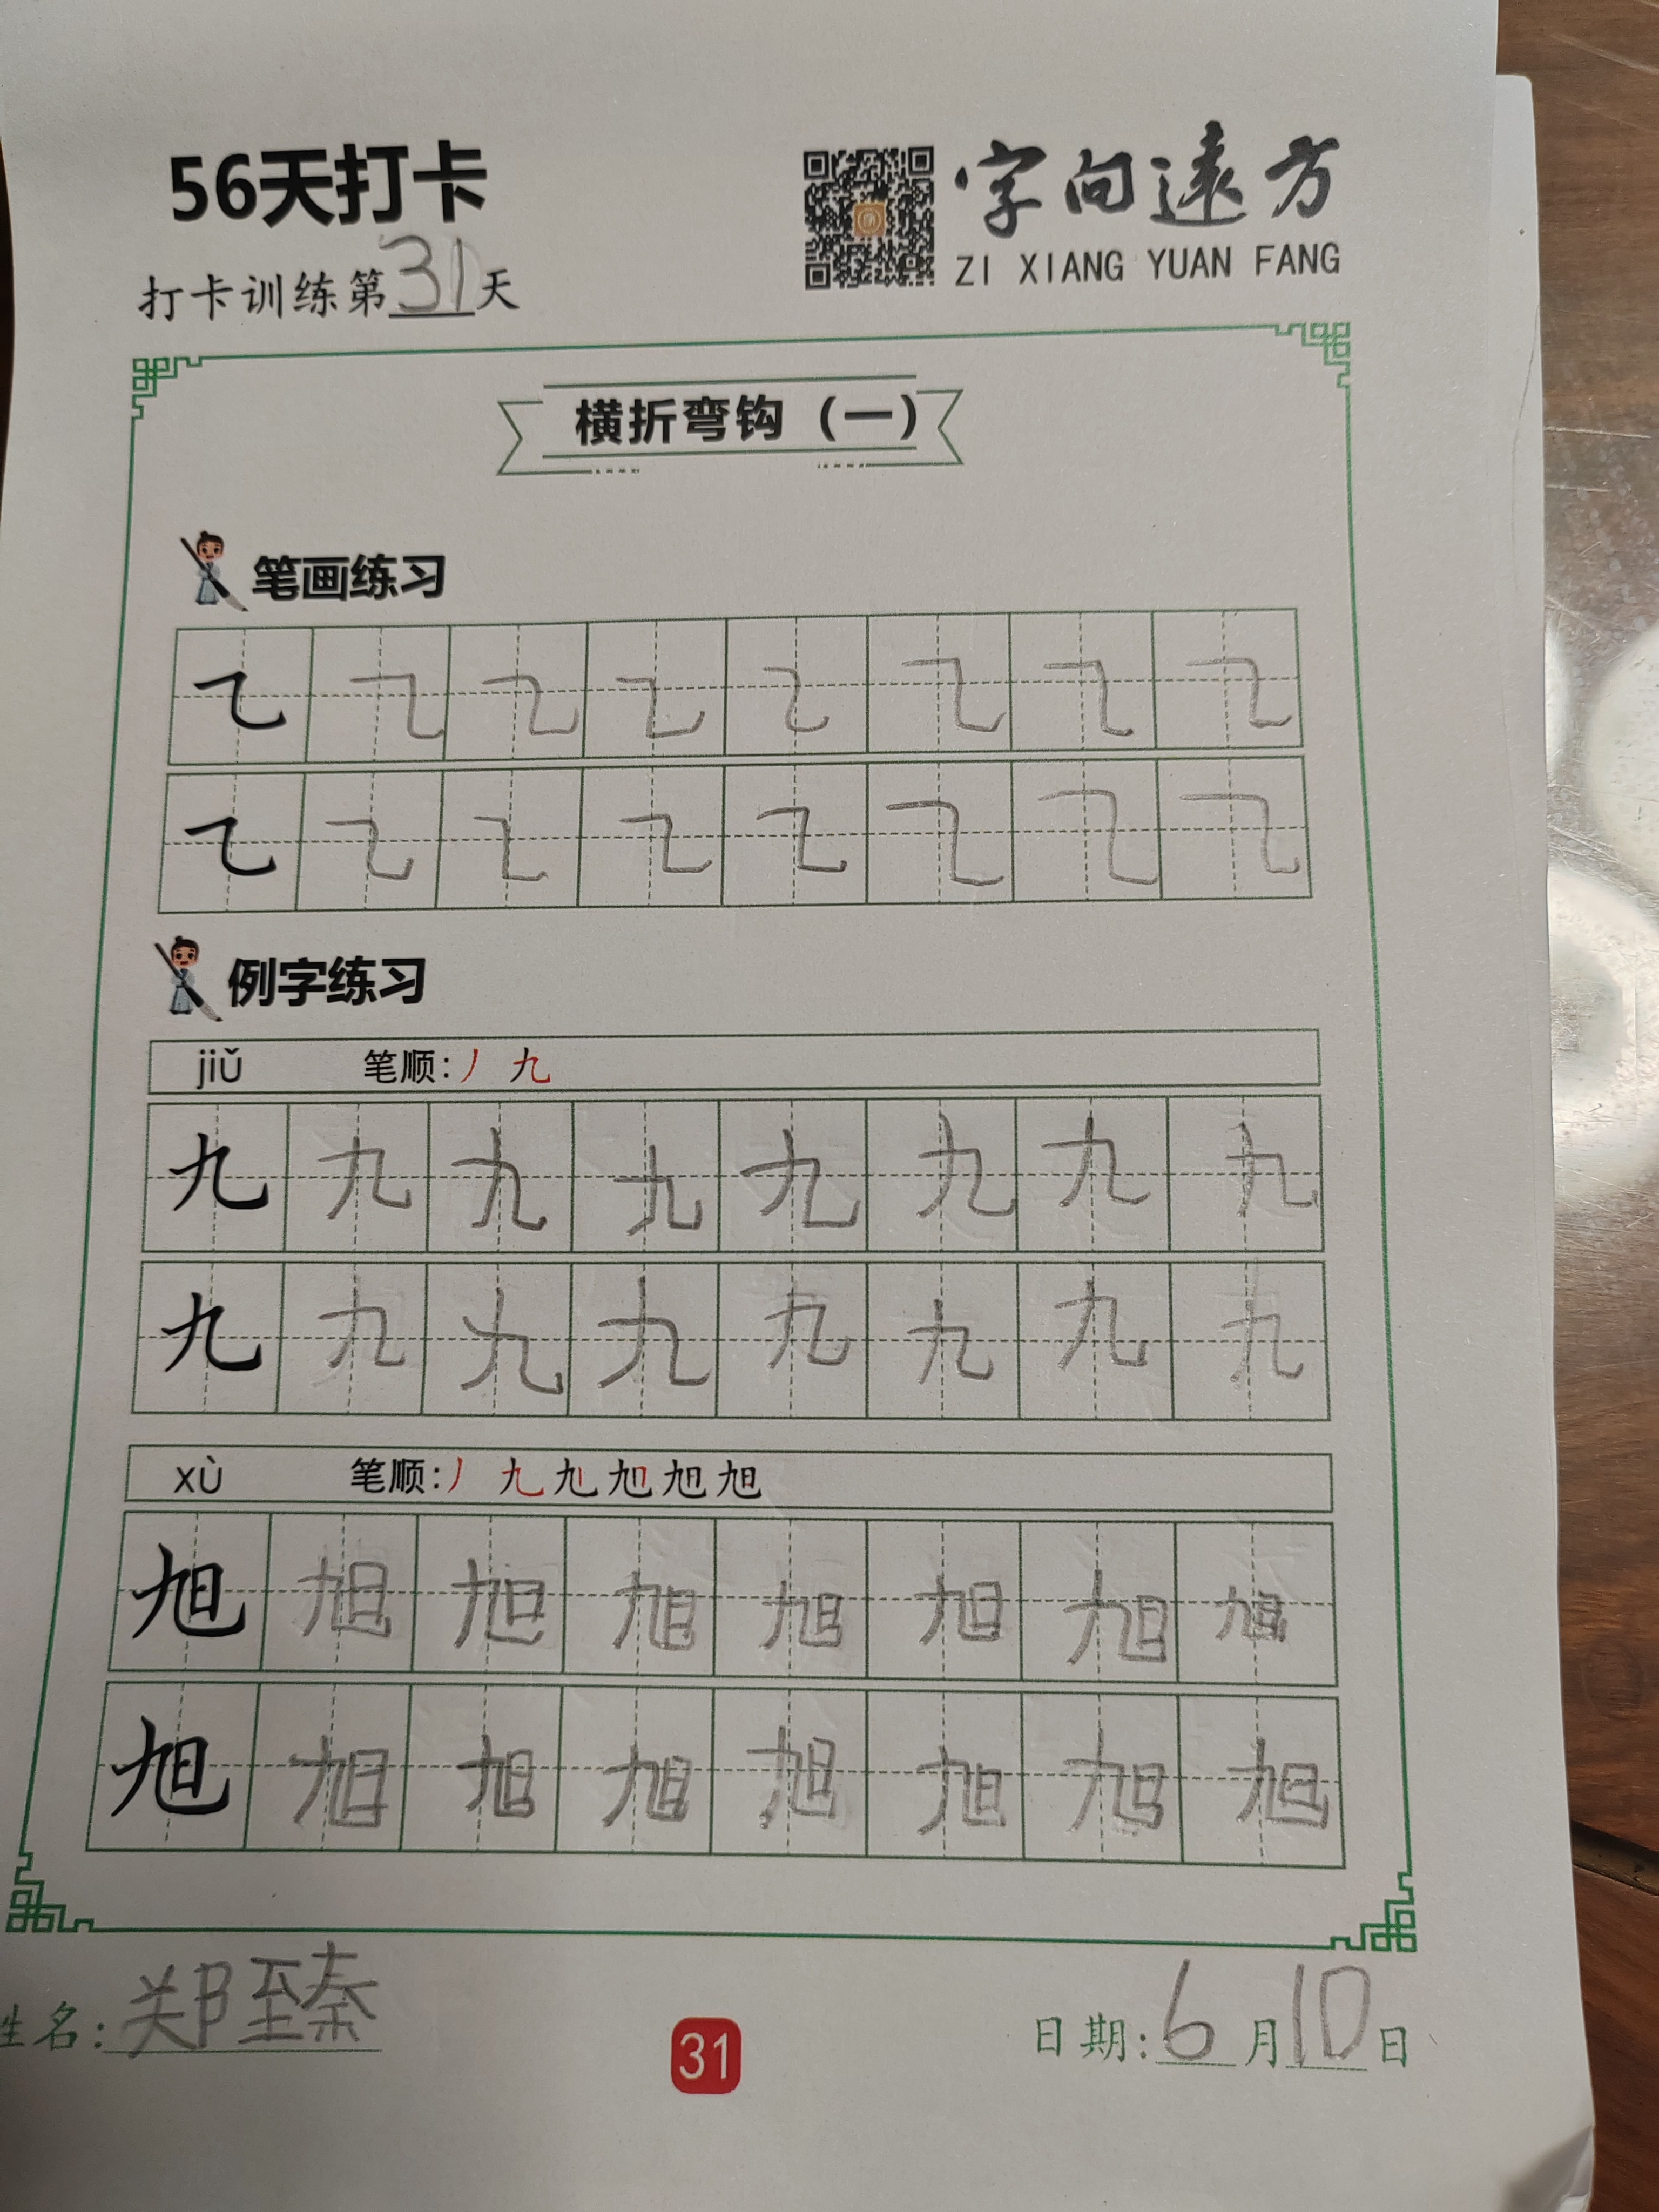 56天打卡
字向遠方
ZI XIANG YUAN FANG
打卡训练第31天
横折弯钩（一）
笔画练习
㇈ ㇈ ㇈ ㇈ ㇈ ㇈ ㇈ ㇈
㇈ ㇈ ㇈ ㇈ ㇈ ㇈ ㇈ ㇈
例字练习
jiǔ 笔顺：丿 九
九 九 九 九 九 九 九 九
九 九 九 九 九 九 九 九
xù 笔顺：丿 九 旭 旭 旭 旭
旭 旭 旭 旭 旭 旭 旭 旭
旭 旭 旭 旭 旭 旭 旭 旭
姓名：郑至秦
31
日期：6月10日